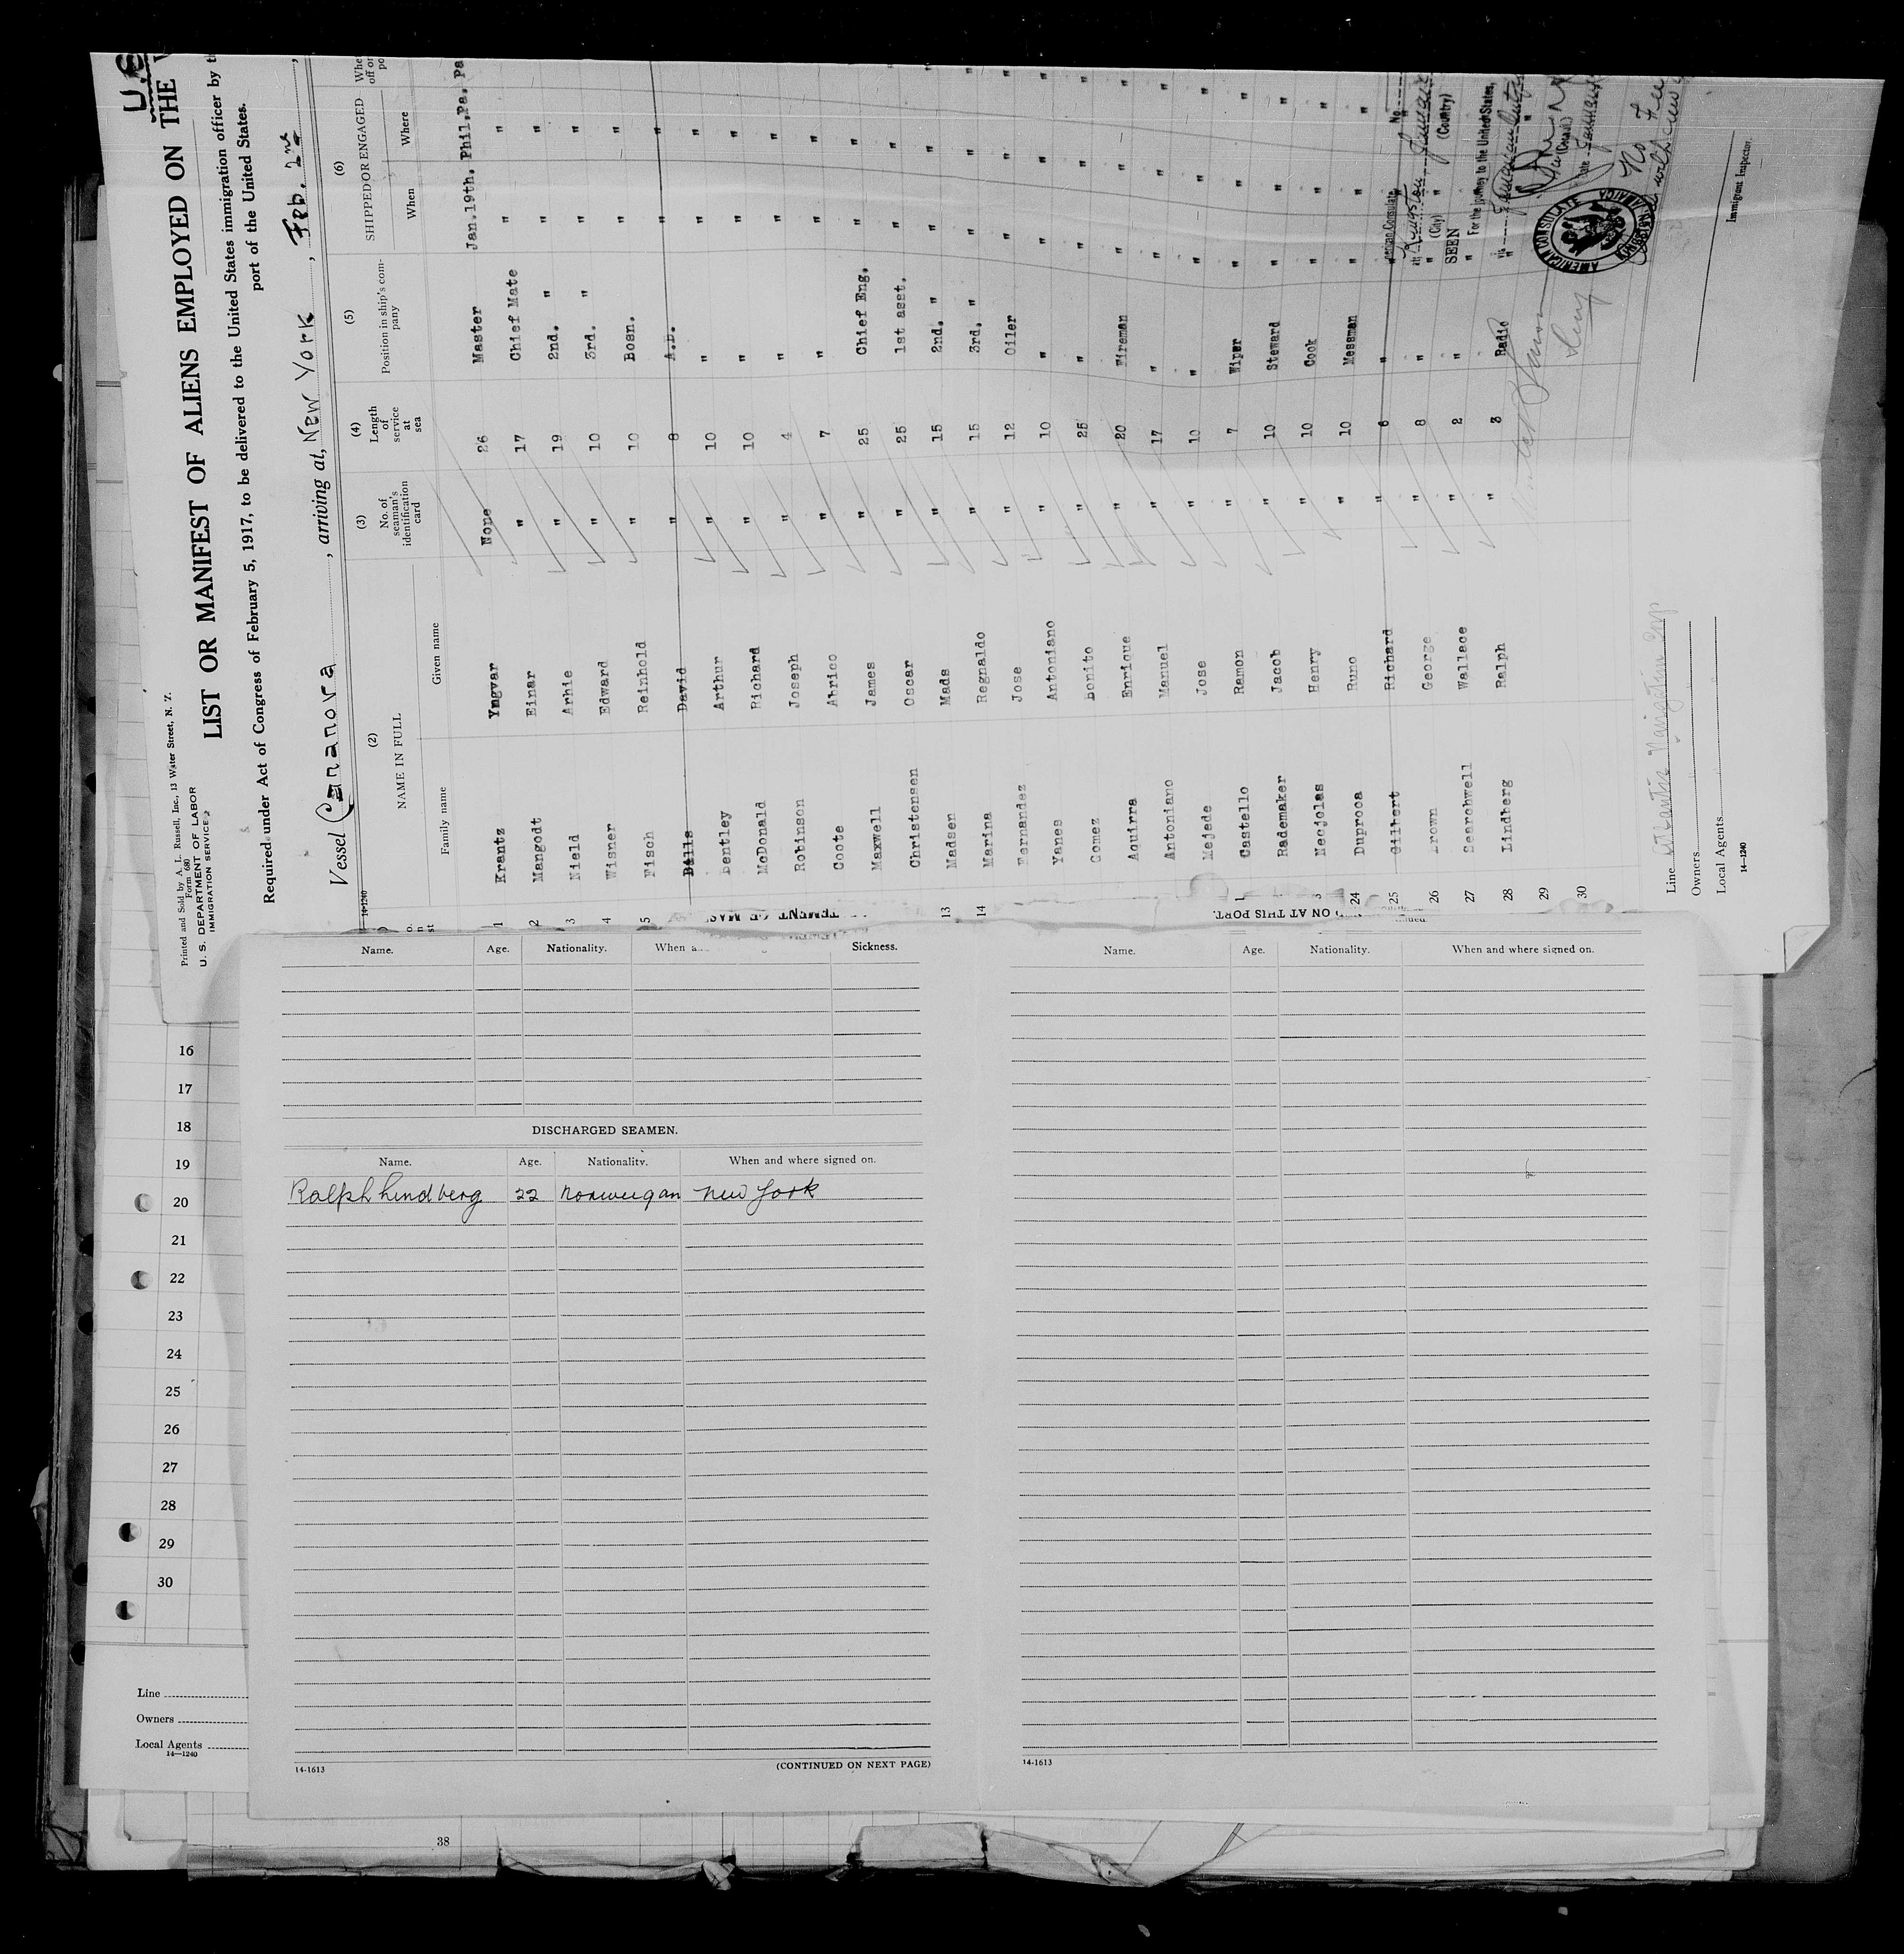 U.S.
Printed and Sold by A. L. Russell, Inc., 13 Water Street, N. Y.
Form 680
U. S. DEPARTMENT OF LABOR
IMMIGRATION SERVICE
LIST OR MANIFEST OF ALIENS EMPLOYED ON THE
Required under Act of Congress of February 5, 1917, to be delivered to the United States immigration officer by
port of the United States.
Vessel Casanova, arriving at, New York, Feb. 2nd,
14-1240
(2) (3) (4) (5) (6)
NAME IN FULL No. of seaman's identification card Length of service at sea Position in ship's company SHIPPED OR ENGAGED
Family name Given name When Where
1 Krantz Yngvar None 26 Master Jan.19th. Phil,Pa. Pa
2 Mangodt Einar " 17 Chief Mate " "
3 Nield Arhie " 19 2nd. " " "
4 Wisner Edward " 10 3rd. " " "
5 Fisch Reinhold " 10 Bosn. " "
Bills David " 8 A.B. " "
Bentley Arthur " 10 " " "
McDonald Richard " 10 " " "
Robinson Joseph " 4 " " "
Coote Abrico " 7 " " "
Maxwell James " 25 Chief Eng. " "
Christensen Oscar " 25 1st asst. " "
13 Madsen Mads " 15 2nd. " " "
14 Marina Regnaldo " 15 3rd. " " "
Fernandez Jose " 12 Oiler " "
Yanes Antoniano " 10 " " "
Gomez Bonito " 25 " " "
Aquirra Enrique " 20 Fireman " "
Antoniano Manuel " 17 " " "
Mejede Jose " 10 " " "
Castello Ramon " 7 Wiper " "
Rademaker Jacob " 10 Steward " "
Necjolas Henry " 10 Cook " "
24 Duproca Runo " 10 Messman " "
25 Gilbert Richard " 6 " "
26 Brown George " 8 " "
27 Searchwell Wallace " 2 " "
28 Lindberg Ralph " 3 Radio "
29
30
American Consulate No.
at Kingston Jamaica
(City) (Country)
SEEN
For the journey to the United States,
via
AMERICAN CONSULATE
KINGSTON, JAMAICA
No Fee
Immigrant Inspector.
Line
Owners
Local Agents
14—1240
ON AT THIS PORT.
Name. Age. Nationality. When Sickness.
Name. Age. Nationality. When and where signed on.
DISCHARGED SEAMEN.
Name. Age. Nationality. When and where signed on.
Ralph Lindberg 22 Norweigan New York
14-1613
(CONTINUED ON NEXT PAGE)
14-1613
16
17
18
19
20
21
22
23
24
25
26
27
28
29
30
Line
Owners
Local Agents
14—1240
38